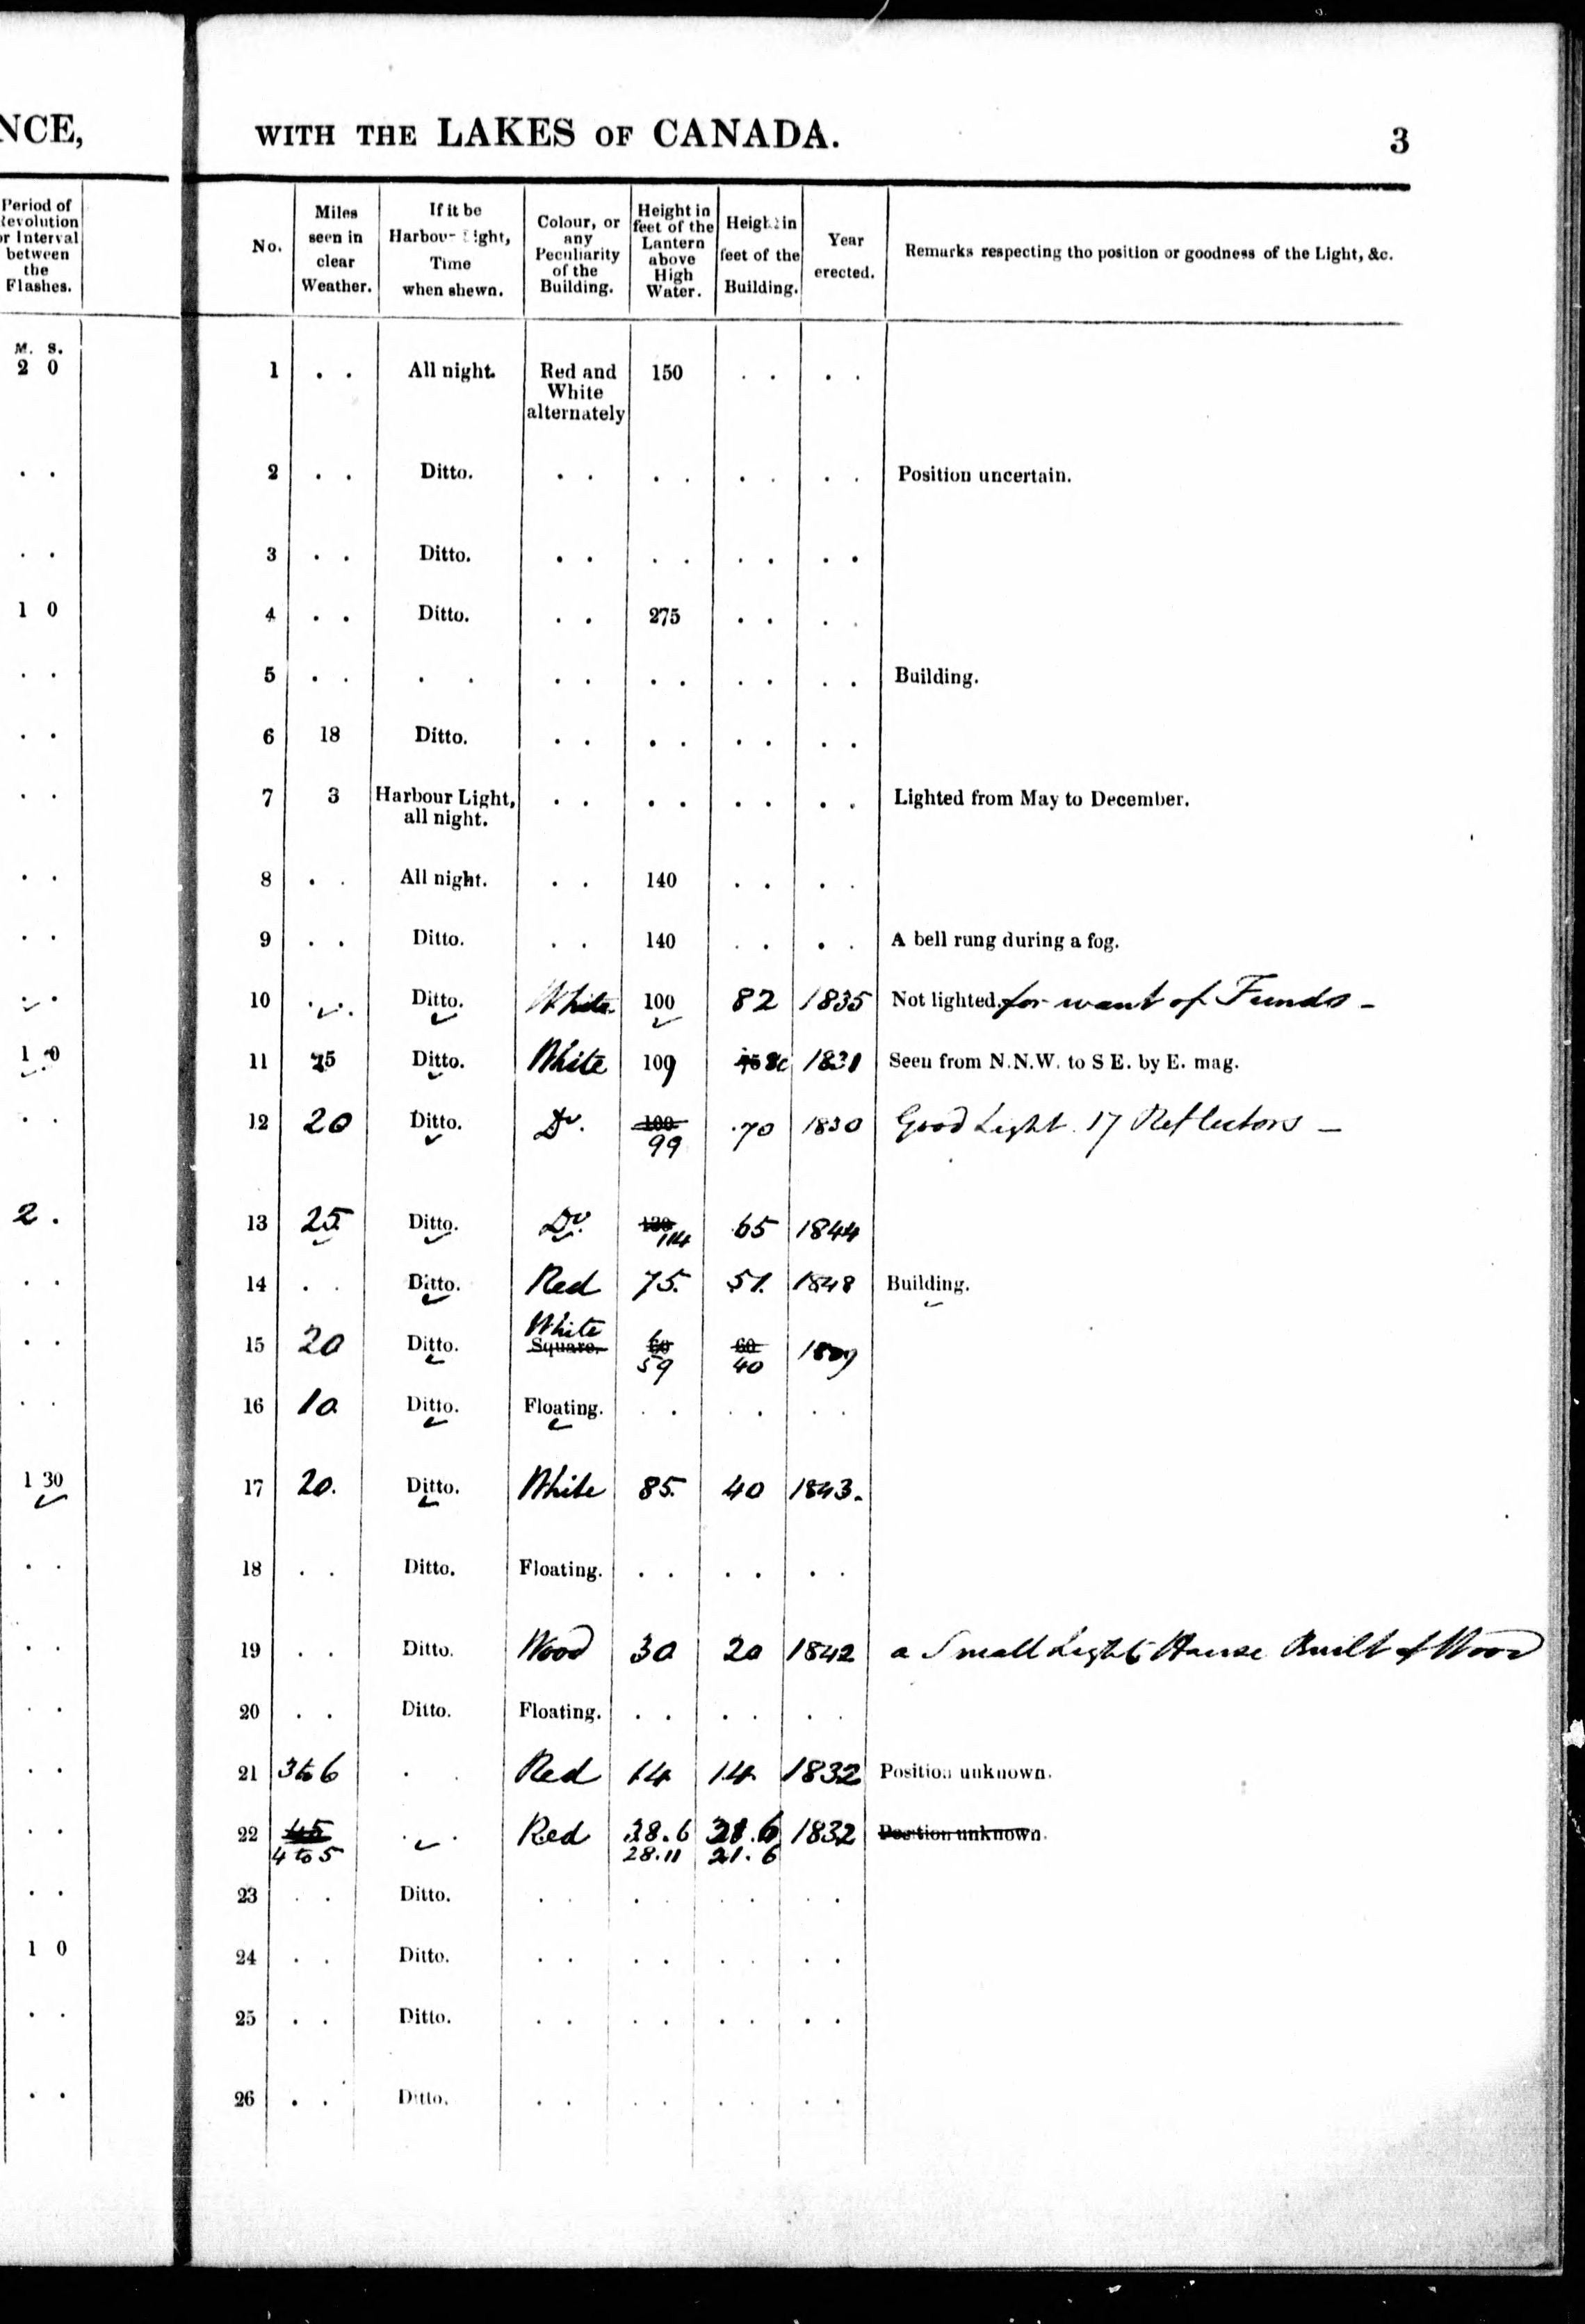 NCE,
WITH THE LAKES OF CANADA. 3
Period of
Revolution
or Interval
between
the
Flashes.
No.
Miles
seen in
clear
Weather.
If it be
Harbour Light,
Time
when shewn.
Colour, or
any
Peculiarity
of the
Building.
Height in
feet of the
Lantern
above
High
Water.
Height in
feet of the
Building.
Year
erected.
Remarks respecting the position or goodness of the Light, &c.
M. S.
2 0 1 . . All night. Red and 150 . . . .
White
alternately
. . 2 . . Ditto. . . . . . . . . Position uncertain.
. . 3 . . Ditto. . . . . . . . .
1 0 4 . . Ditto. . . 275 . . . .
. . 5 . . . . . . . . . . . . Building.
. . 6 18 Ditto. . . . . . . . .
. . 7 3 Harbour Light, . . . . . . . . Lighted from May to December.
all night.
. . 8 . . All night. . . 140 . . . .
. . 9 . . Ditto. . . 140 . . . . A bell rung during a fog.
. . 10 . . Ditto. White 100 82 1835 Not lighted, for want of Funds –
1 0 11 25 Ditto. White 109 1831 Seen from N.N.W. to S E. by E. mag.
. . 12 20 Ditto. Do. 100 70 1830 Good Light 17 Reflectors –
99
2 . 13 25 Ditto. Do. 114 65 1844
. . 14 . . Ditto. Red 75. 51. 1848 Building.
White
. . 15 20 Ditto. Square. 60 60
59 40
. . 16 10 Ditto. Floating. . . . . . .
1 30 17 20. Ditto. White 85. 40 1843.
. . 18 . . Ditto. Floating. . . . . . .
. . 19 . . Ditto. Wood 30 20 1842 a Small Light House Built of Wood
. . 20 . . Ditto. Floating. . . . . . .
. . 21 3 to 6 . . Red 14 14 1832 Position unknown.
. . 22 45 . . Red 28.6 1832 Position unknown.
4 to 5 28.11 21.6
. . 23 . . Ditto. . . . . . . . .
1 0 24 . . Ditto. . . . . . . . .
. . 25 . . Ditto. . . . . . . . .
. . 26 . . Ditto. . . . . . . . .